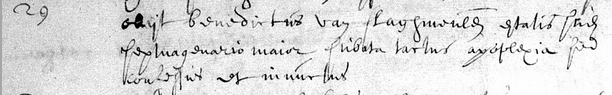 29 obijt benedictus van slaghmeulen etatis sue
septuagenario maior subita tactus apoplexia sed
confessus et inunctus